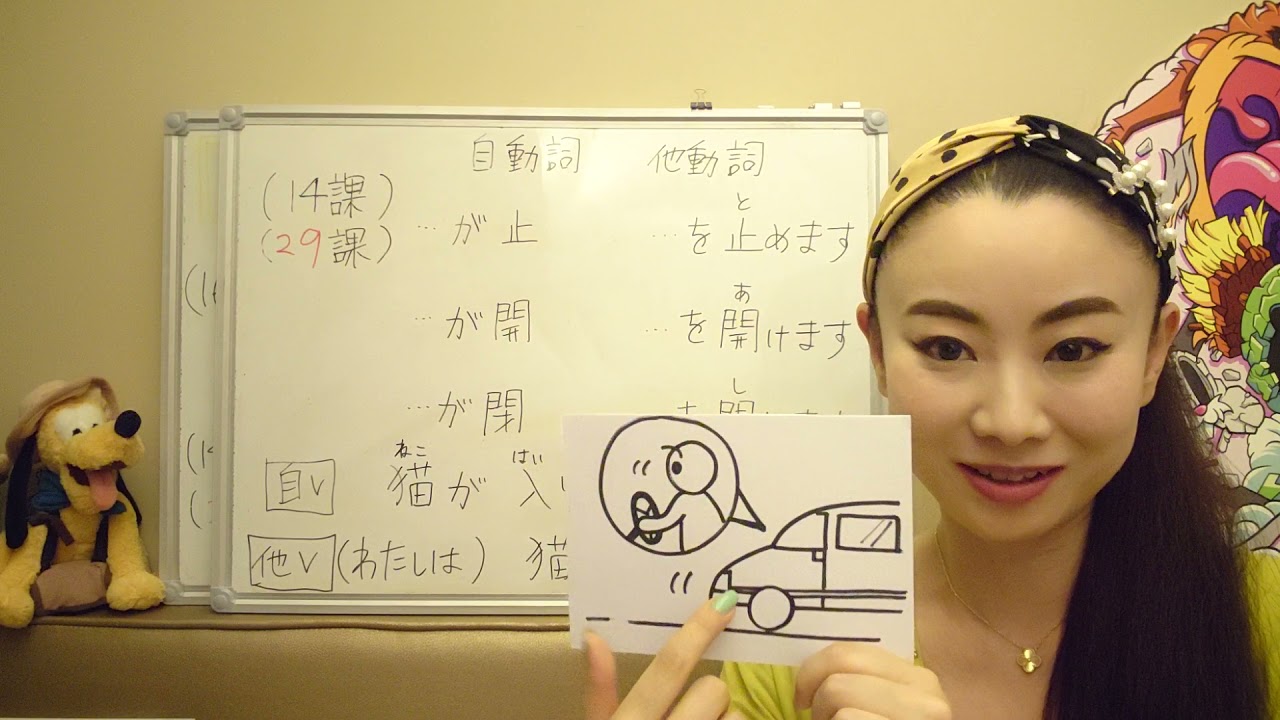 自動詞 他動詞
(14課)
(29課)
…が止 と …を止めます
…が開 あ …を開けます
…が閉 し
自V ねこ 猫が はい 入
他V (わたしは) 猫